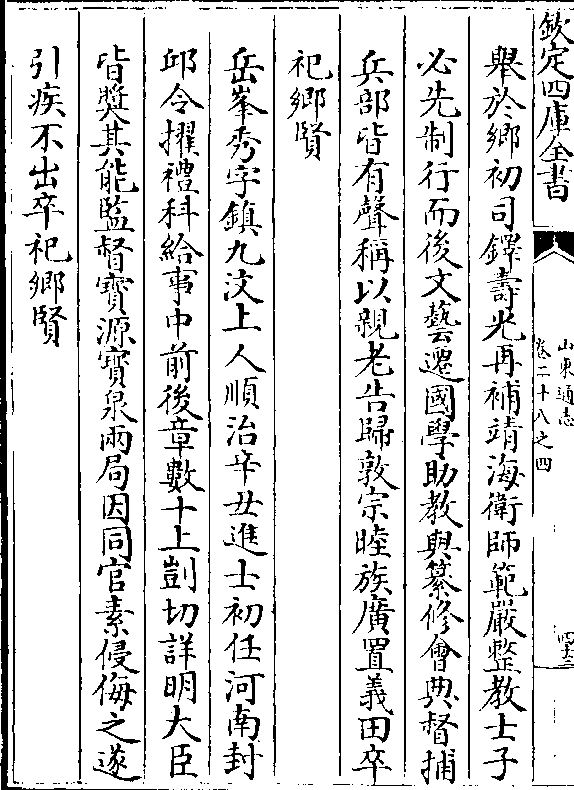 欽定四庫全書
山東通志
卷二十八之四
舉於鄉初司鐸壽光再補靖海衛師範嚴整教士子
必先制行而後文藝遷國學助教與纂修會典督捕
兵部皆有聲稱以親老告歸敦宗睦族廣置義田卒
祀鄉賢
岳峯秀字鎮九汶上人順治辛丑進士初任河南封
邱令擢禮科給事中前後章數十上剴切詳明大臣
皆奬其能監督寶源寶泉兩局因同官素侵侮之遂
引疾不出卒祀鄉賢